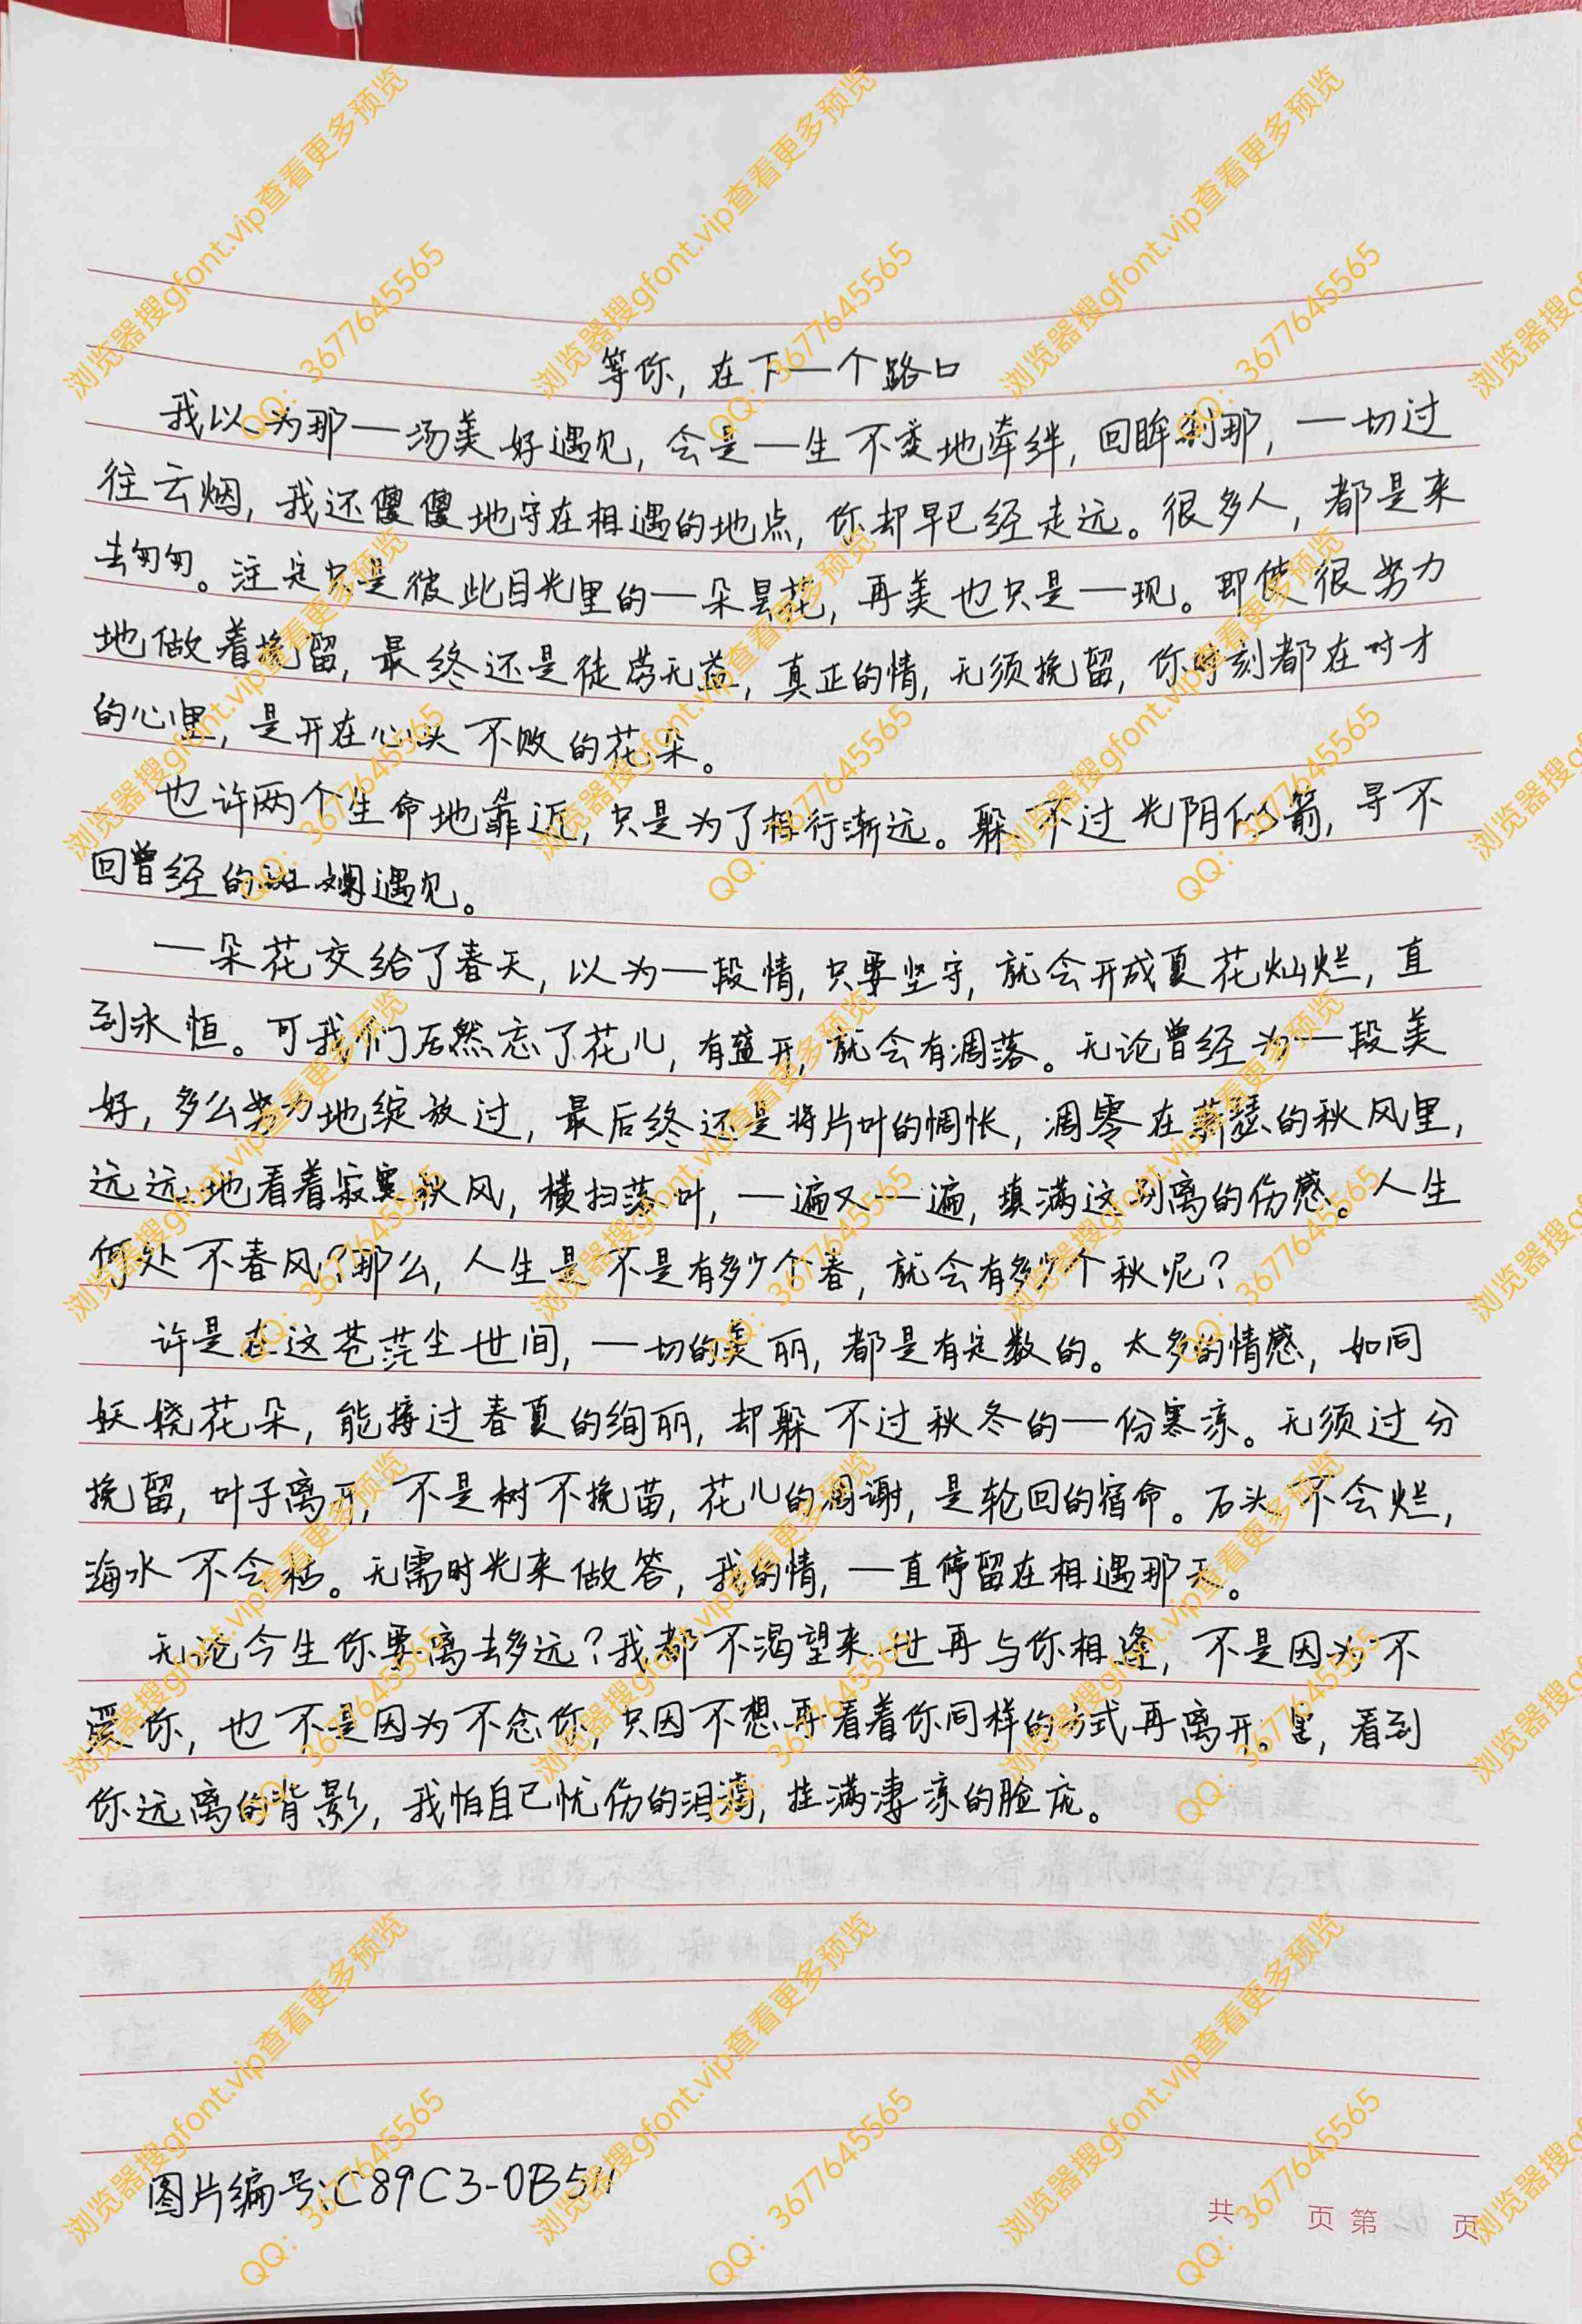 等你，在下一个路口
我以为那一场美好遇见，会是一生不变地牵绊，回眸刹那，一切过
往云烟，我还傻傻地守在相遇的地点，你却早已经走远。很多人，都是来
去匆匆。注定只是彼此目光里的一朵昙花，再美也只是一现。即使很努力
地做着挽留，最终还是徒劳无益，真正的情，无须挽留，你时刻都在对方
的心里，是开在心头不败的花朵。
也许两个生命地靠近，只是为了相行渐远。躲不过光阴似箭，寻不
回曾经的斑斓遇见。
一朵花交给了春天，以为一段情，只要坚守，就会开成夏花灿烂，直
到永恒。可我们居然忘了花儿，有盛开，就会有凋落。无论曾经为一段美
好，多么努力地绽放过，最后终还是将片叶的惆怅，凋零在萧瑟的秋风里，
远远地看着寂寞秋风，横扫落叶，一遍又一遍，填满这别离的伤感。人生
何处不春风？那么，人生是不是有多少个春，就会有多少个秋呢？
许是在这苍茫尘世间，一切的美丽，都是有定数的。太多的情感，如同
妖娆花朵，能接过春夏的绚丽，却躲不过秋冬的一份寒凉。无须过分
挽留，叶子离开，不是树不挽留，花儿的凋谢，是轮回的宿命。石头不会烂，
海水不会枯。无需时光来做答，我的情，一直停留在相遇那天。
无论今生你要离去多远？我都不渴望来世再与你相逢，不是因为不
爱你，也不是因为不念你，只因不想再看着你同样的方式再离开。里，看到
你远离的背影，我怕自己忧伤的泪滴，挂满凄凉的脸庞。
图片编号：C89C3-0B5U
共 页 第 页
浏览器搜gfont.vip查看更多预览
QQ：3677645565